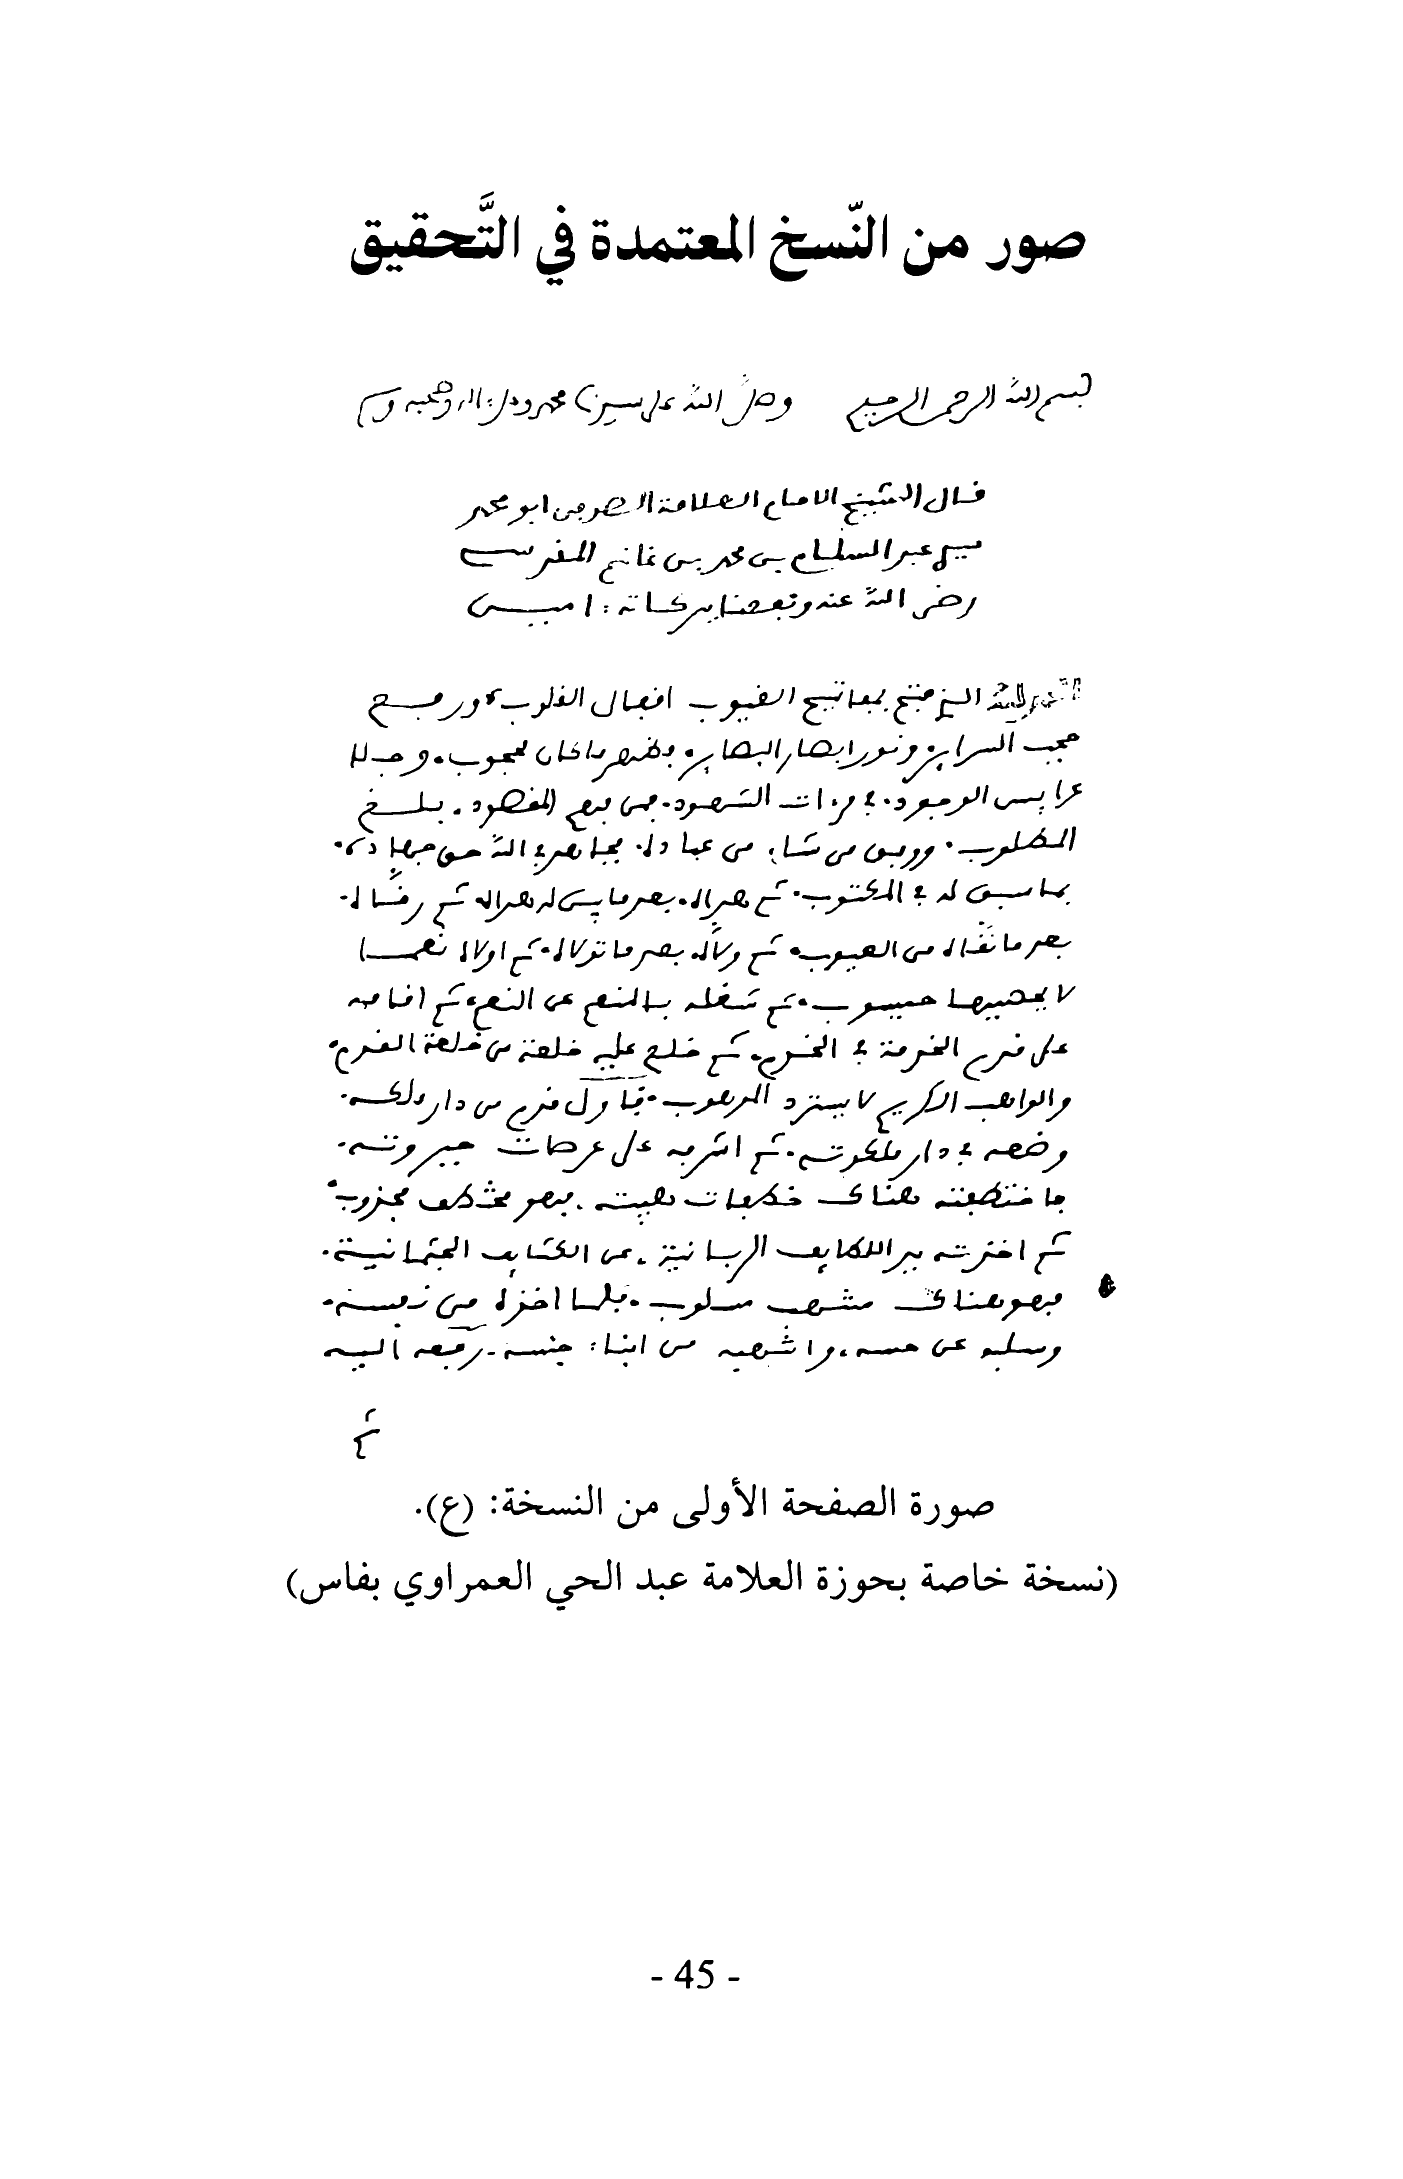 صور من النّسخ المعتمدة في التَّحقيق
بسم الله الرحمن الرحيم وصلى الله على سيدنا محمد وعلى اله وصحبه وسلم
قال الشيخ الامام العلامة الصوفي ابو محمد
سيدي عبد السلام بن محمد بن غانم المقدسي
رضي الله عنه ونفعنا ببركاته امين
الحمد لله الذي فتح بمفاتيح الغيوب اقفال القلوب، ورفع
حجب السراير ونور ابصار البصاير، فظهر ما كان محجوب، وجلا
عرايس الوجود، في مرءات الشهود، فمن فهم المقصود، بلغ
المطلوب، ووفق من شاء من عباده، فجاهد في الله حق جهاده،
بما سبق له في المكتوب، ثم هداه، بعد ما بين له هداه ثم رضاه،
بعد ما نقاه من العيوب، ثم ولاه بعد ما تولاه، ثم اولاه نعما
لا يحصيها حيسوب، ثم شغله بالمنعم عن النعم، ثم اقامه
على قدم الخدمة في الخدم، ثم خلع عليه خلعة من خلعة القدم،
والواهب الكريم لا يسترد الموهوب، فاول قدم من دار ملكه،
وضعه في دار ملكوته، ثم اشرف على عرصات جبروته،
فاختطفته هناك خطفات هيبته، فهو مختطف مجذوب
ثم اخذته يد اللطايف الربانية، عن الكثايف الجثمانية،
فهو هناك منتهب مسلوب، فلما اخذه من نفسه،
وسلبه عن حسه، و من ابناء جنسه، رفعه اليه
ثم
صورة الصفحة الأولى من النسخة: (ع).
(نسخة خاصة بحوزة العلامة عبد الحي العمراوي بفاس)
- 45 -